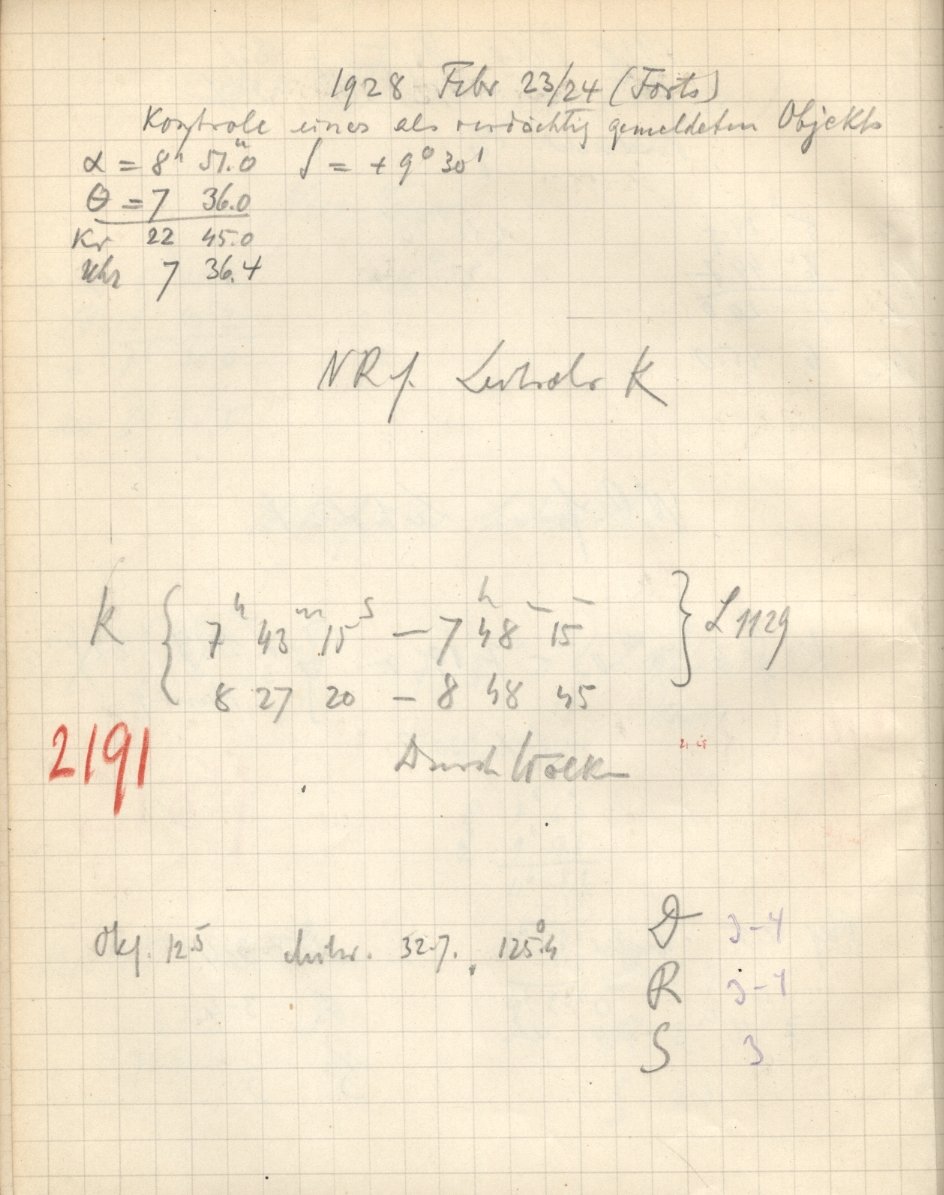 1928 Febr 23/24 (Forts)
Kontrole eines als verdächtig gemeldeten Objekts
α = 8ʰ 51.ᵐ0 δ = + 9° 30'
θ = 7 36.0
Kr 22 45.0
Uhr 7 36.4
NRf. Leitrohr K
K { 7ʰ 43ᵐ 15ˢ – 7ʰ 48 15 } L 1129
8 27 20 – 8 48 45
2191
Durch Wolken
Okl. 12.5 32.7. 125.°4
D 3-4
R 3-4
S 3